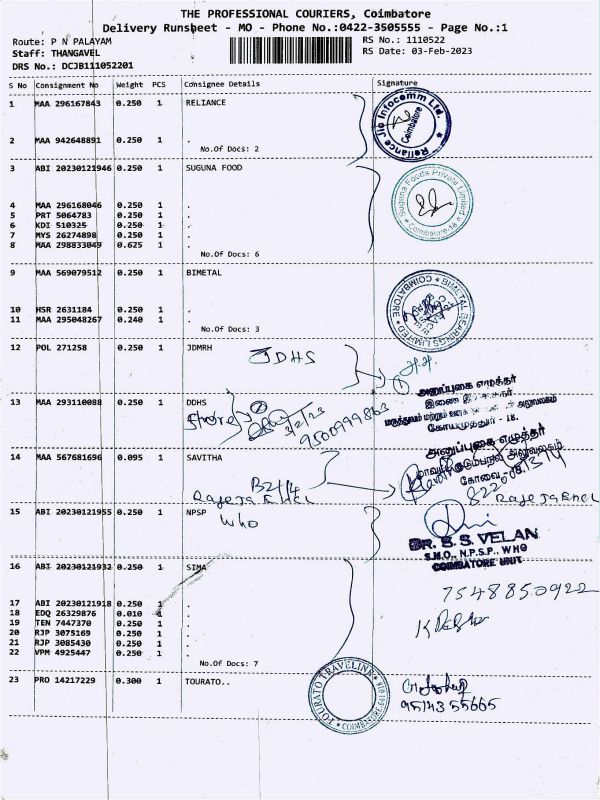 THE PROFESSIONAL COURIERS, Coimbatore
Delivery Runsheet - MO - Phone No.:0422-3505555 - Page No.:1
Route: P N PALAYAM
RS No.: 1110522
Staff: THANGAVEL
RS Date: 03-Feb-2023
DRS No.: DCJB111052201
S No Consignment No Weight PCS Consignee Details Signature
1 MAA 296167843 0.250 1 RELIANCE
Reliance Jio Infocomm Ltd. Coimbatore
2 MAA 942648891 0.250 1 .
No.Of Docs: 2
3 ABI 20230121946 0.250 1 SUGUNA FOOD
Suguna Foods Private Limited Coimbatore-18
4 MAA 296168046 0.250 1 .
5 PRT 5064783 0.250 1 .
6 KDI 510325 0.250 1 .
7 MYS 26274898 0.250 1 .
8 MAA 298833049 0.625 1 .
No.Of Docs: 6
9 MAA 569079512 0.250 1 BIMETAL
BIMETAL BEARINGS LIMITED COIMBATORE
10 HSR 2631184 0.250 1 .
11 MAA 295048267 0.240 1 .
No.Of Docs: 3
12 POL 271258 0.250 1 JDMRH
JDHS
அனுப்புகை எழுத்தர்
13 MAA 293110088 0.250 1 DDHS
Store
3/2/23
9500999863
கோயமுத்தூர் - 18.
அனுப்புகை எழுத்தர்
14 MAA 567681696 0.095 1 SAVITHA
B2/14
15 ABI 20230121955 0.250 1 NPSP
WHO
DR. S. S. VELAN
S.M.O., N.P.S.P., WHO
COIMBATORE UNIT
16 ABI 20230121932 0.250 1 SIMA
7548850922
17 ABI 20230121918 0.250 1 .
18 EDQ 26329876 0.010 1 .
19 TEN 7447370 0.250 1 .
20 RJP 3075169 0.250 1 .
21 RJP 3085430 0.250 1 .
22 VPM 4925447 0.250 1 .
No.Of Docs: 7
23 PRO 14217229 0.300 1 TOURATO..
TOURATO TRAVELINK COIMBATORE
9514355665